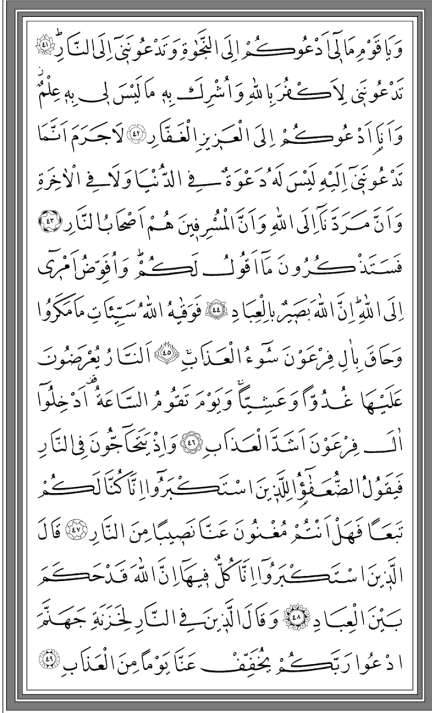 وَيَا قَوْمِ مَالِٓى اَدْعُوكُمْ اِلَى النَّجٰوةِ وَتَدْعُونَنٓى اِلَى النَّارِۜ ﴿٤١﴾
تَدْعُونَنٓى لِاَكْفُرَ بِاللّٰهِ وَاُشْرِكَ بِهٖ مَا لَيْسَ لٖى بِهٖ عِلْمٌۘ
وَاَنَا۬ اَدْعُوكُمْ اِلَى الْعَزٖيزِ الْغَفَّارِ ﴿٤٢﴾ لَاجَرَمَ اَنَّمَا
تَدْعُونَنٓى اِلَيْهِ لَيْسَ لَهُ دَعْوَةٌ فِى الدُّنْيَا وَلَا فِى الْاٰخِرَةِ
وَاَنَّ مَرَدَّنَٓا اِلَى اللّٰهِ وَاَنَّ الْمُسْرِفٖينَ هُمْ اَصْحَابُ النَّارِ ﴿٤٣﴾
فَسَتَذْكُرُونَ مَٓا اَقُولُ لَكُمْۜ وَاُفَوِّضُ اَمْرٖٓى
اِلَى اللّٰهِۜ اِنَّ اللّٰهَ بَصٖيرٌ بِالْعِبَادِ ﴿٤٤﴾ فَوَقٰيهُ اللّٰهُ سَيِّـَٔاتِ مَا مَكَرُوا
وَحَاقَ بِاٰلِ فِرْعَوْنَ سُٓوءُ الْعَذَابِۚ ﴿٤٥﴾ اَلنَّارُ يُعْرَضُونَ
عَلَيْهَا غُدُوًّا وَعَشِيًّاۚ وَيَوْمَ تَقُومُ السَّاعَةُ۠ اَدْخِلُٓوا
اٰلَ فِرْعَوْنَ اَشَدَّ الْعَذَابِ ﴿٤٦﴾ وَاِذْ يَتَحَٓاجُّونَ فِى النَّارِ
فَيَقُولُ الضُّعَفٰٓؤُ۬ا لِلَّذٖينَ اسْتَكْبَرُٓوا اِنَّا كُنَّا لَكُمْ
تَبَعًا فَهَلْ اَنْتُمْ مُغْنُونَ عَنَّا نَصٖيبًا مِنَ النَّارِ ﴿٤٧﴾ قَالَ
الَّذٖينَ اسْتَكْبَرُٓوا اِنَّا كُلٌّ فٖيهَٓا اِنَّ اللّٰهَ قَدْ حَكَمَ
بَيْنَ الْعِبَادِ ﴿٤٨﴾ وَقَالَ الَّذٖينَ فِى النَّارِ لِخَزَنَةِ جَهَنَّمَ
ادْعُوا رَبَّكُمْ يُخَفِّفْ عَنَّا يَوْمًا مِنَ الْعَذَابِ ﴿٤٩﴾